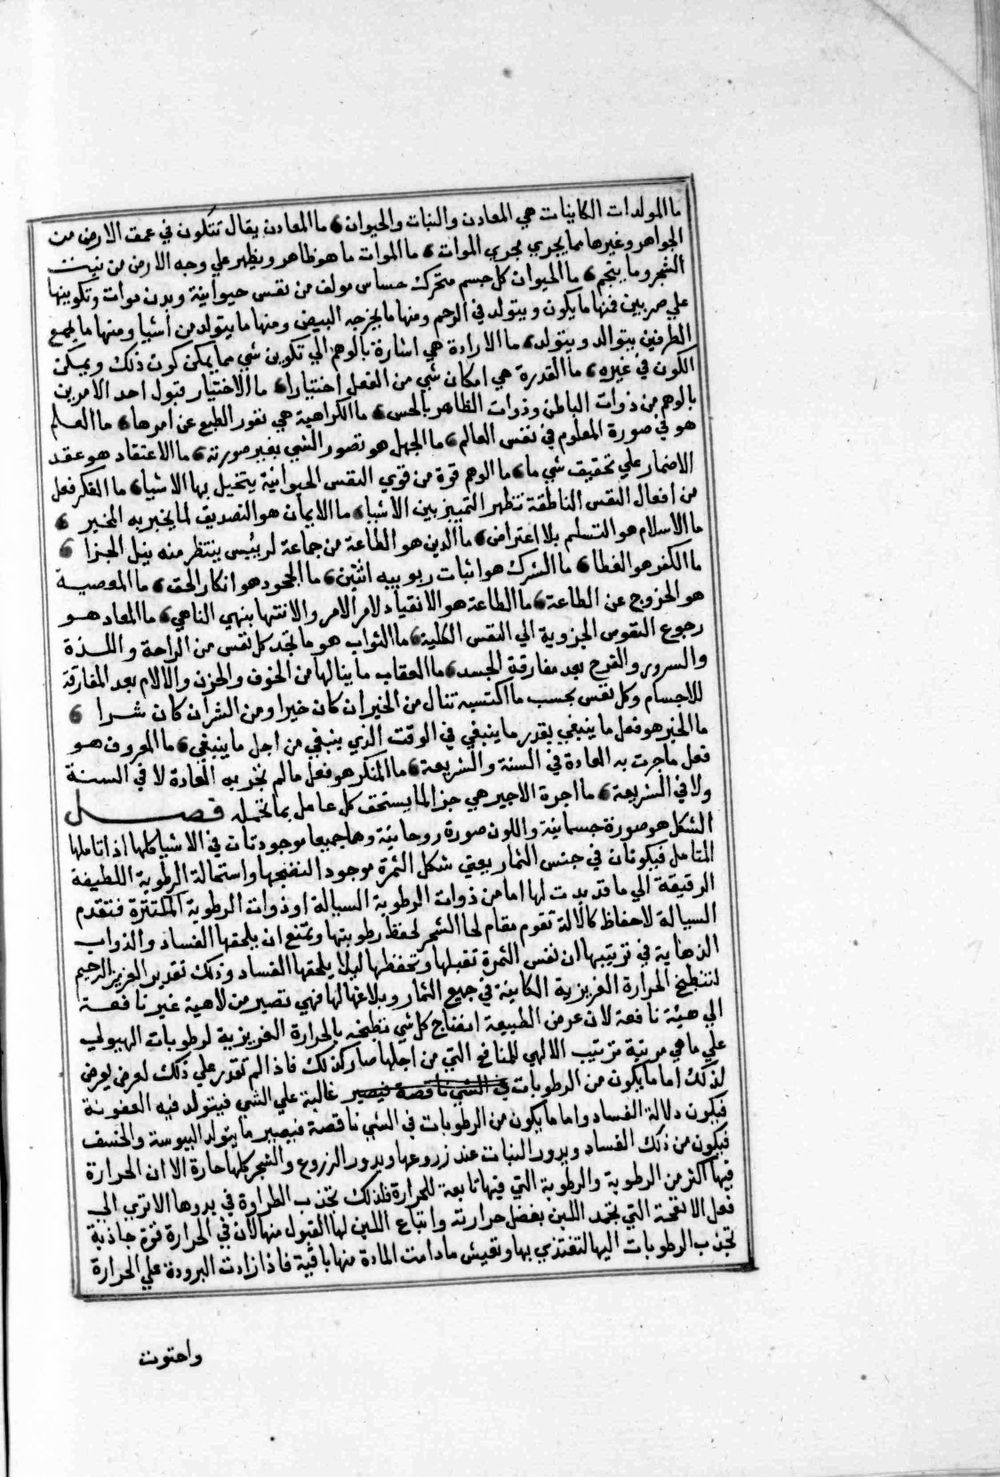 ما المولدات الكاينات هي المعادن والنبات والحيوان ٥ ما المعادن يقال تتكون في عمق الارض من
الجواهر وغيرها مما يجري مجري الموات ٥ ما الموات ما هو ظاهر ويظهر علي وجه الارض من نبت
الشجر وما ينجم ٥ ما الحيوان كل جسم متحرك حساس مولف من نفس حيوانية وبدن موات وتكوينها
علي ضربين فمنها ما يكون ويتولد في الرحم ومنها ما يخرجه البيض ومنها ما يتولد من أشيا ومنها ما يجمع
الطرفين يتوالد ويتولد ٥ ما الارادة هي اشارة بالوهم الي تكوين شي مما يمكن كون ذلك ويمكن
الكون في غيره ٥ ما القدرة هي امكان شي من الفعل اختيارا ٥ ما الاختيار قبول احد الامرين
بالوهم من ذوات الباطن وذوات الظاهر بالحس ٥ ما الكراهية هي نفور الطبع عن امرها ٥ ما العلم
هو في صورة المعلوم في نفس العالم ٥ ما الجهل هو تصور الشي بغير صورته ٥ ما الاعتقاد هو عقد
الاضمار علي تحقيق شي ما ٥ ما الوهم قوة من قوي النفس الحيوانية يتخيل بها الاشيا ٥ ما الفكر فعل
من افعال النفس الناطقة تظهر التمييز بين الاشيا ٥ ما الايمان هو التصديق لما يخبر به المخبر ٥
ما الاسلام هو التسلم بلا اعتراض ٥ ما الدين هو الطاعة من جماعة لرييس ينتظر منه نيل الجزا ٥
ما الكفر هو الغطا ٥ ما الشرك هو اثبات ربوبيه اثنين ٥ ما الجحود هو انكار الحق ٥ ما المعصية
هو الخروج عن الطاعة ٥ ما الطاعة هو الانقياد لامر الامر والانتها بنهي الناهي ٥ ما المعاد هو
رجوع النفوس الجزوية الي النفس الكلية ٥ ما الثواب هو ما تجد كل نفس من الراحة واللذة
والسرور والفرح بعد مفارقة الجسد ٥ ما العقاب ما ينالها من الخوف والحزن والالام بعد المفارقة
للاجسام وكل نفس بحسب ما اكتسبة تنال من الخير ان كان خيرا ومن الشر ان كان شرا ٥
ما الخير هو فعل ما ينبغي بقدر ما ينبغي في الوقت الذي ينبغي من اجل ما ينبغي ٥ ما المعروف هو
فعل ما جرت به العادة في السنة والشريعة ٥ ما المنكر هو فعل ما لم تجر به العادة لا في السنة
ولا في الشريعة ٥ ما اجرة الاجير هي جزا لما يستحق كل عامل بما تحمله فصل
الشكل هو صورة جسمانية واللون صورة روحانية وهما جميعا موجودتان في الاشيا كلها اذا تاملها
المتامل فيكونان في جنس الثمار يعني شكل الثمرة موجود النضجها واستحالة الرطوبة اللطيفة
الرقيقة الي ما قد بدت لها اما من ذوات الرطوبة السيالة او ذوات الرطوبة المكتنزة فتقدم
السيالة لاحفاظ كالالة تقوم مقام لحا الشجر لحفظ رطوبتها وتمنع ان يلحقها الفساد والذواب
الدهانية في ترتيبها ان نفس الثمرة تقبلها وتحفظها ليلا يلحقها الفساد وذلك تقدير العزيز الرحيم
لتنطبخ الحرارة الغريزية الكاينة في جميع الثمار وبلاغها لها فهي تصير من لاهية غير نافعة
الي هيئة نافعة لان عرض الطبيعة انضاج كل شي تطبخه بالحرارة الغريزية لرطوبات الهيولي
علي ما هي مرتبة مرتيب الالهي للمنافع التي من اجلها صار كذلك فاذا لم تقدر علي ذلك لعرض يعرض
لذلك اما ما يكون من الرطوبات في الشي ناقصة فيصير غالبة علي الشي فيتولد فيه العفونة
فيكون دلالة الفساد واما ما يكون من الرطوبات في الشي ناقصة فيصير ما يتولد اليبوسة والخسف
فيكون من ذلك الفساد وبدور النبات عند زروعها وبدور الزروع والشجر كلها حارة الا ان الحرارة
فيها اكثر من الرطوبة والرطوبة التي فيها تابعة للحرارة فلذلك تجذب الطراوة في بدوها الا تري الى
فعل الانفحة التي تجمد اللبن بفضل حرارته واتباع اللبن لها القبول منها لان في الحرارة قوة جاذبة
تجذب الرطوبات اليها لتغتذي بها وتعيش ما دامت المادة منها باقية فاذا زادت البرودة علي الحرارة
واحتوت